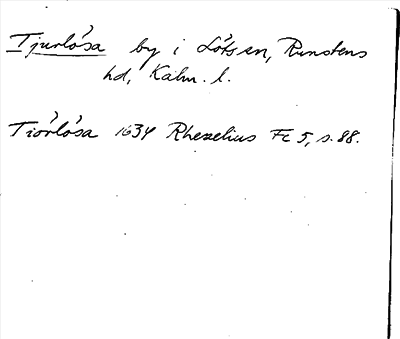 Tjurlösa by i Löts sn, Runstens
hd, Kalm. l.
Tiörlösa 1634 Rhezelius Fc 5, s. 88.